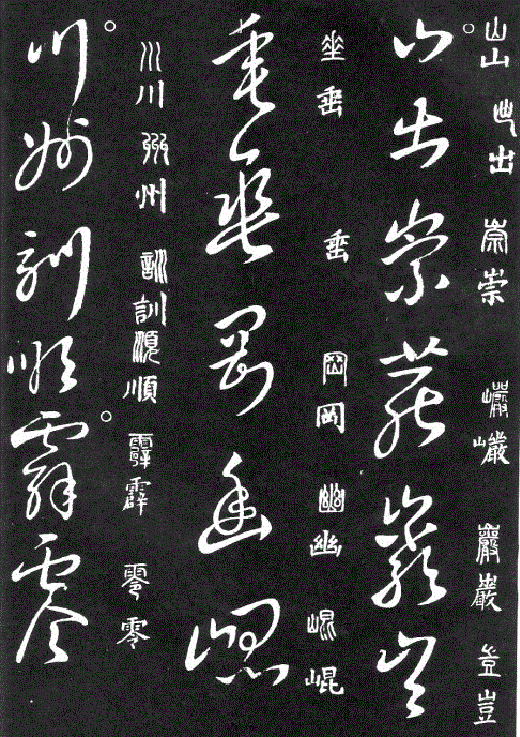 山山 出出 崇崇 巗巗 巖巖 豈豈
山出崇巗巖豈
垂垂 垂 岡岡 幽幽 崐崐
垂垂岡幽崐
川川 州州 訓訓 順順 霹霹 零零
川州訓順霹零